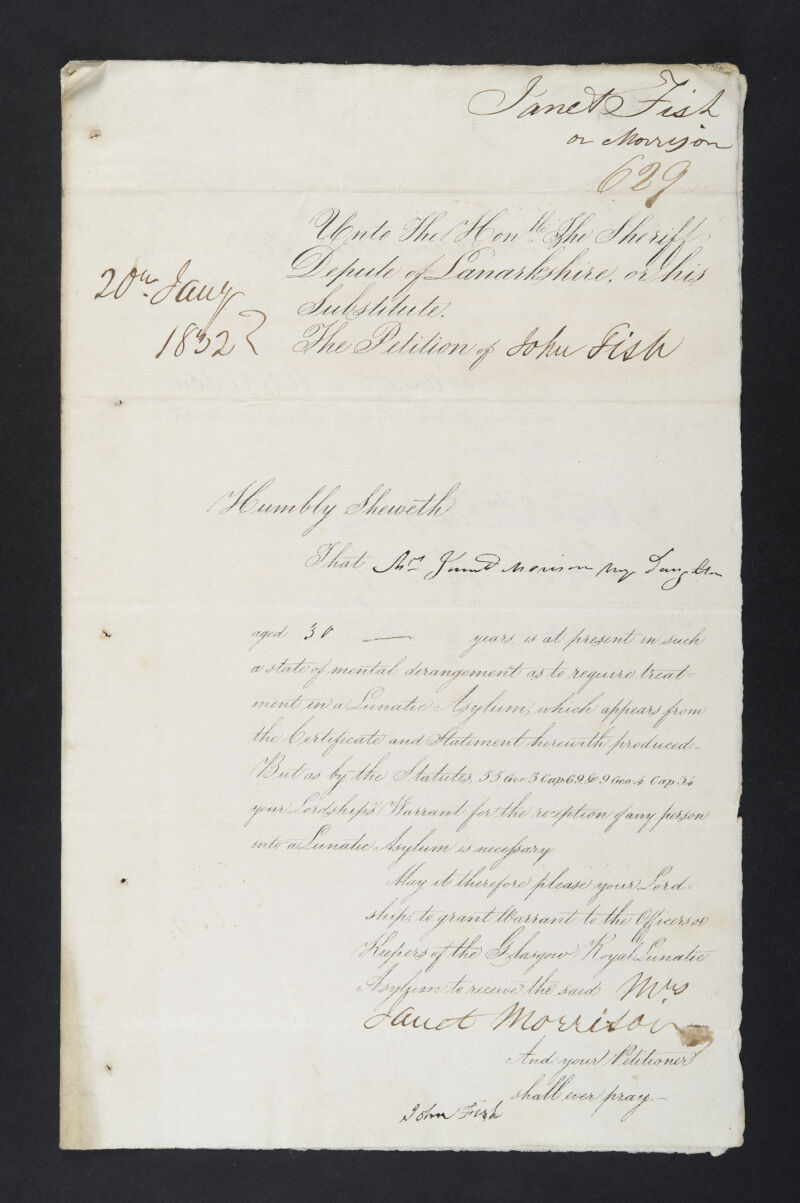 Janet Fish
or Morrison
629
Unto The Honble The Sheriff
Depute of Lanarkshire, or his
Substitute.
20th Jany
1832
The Petition of John Fish
Humbly Sheweth
That Mrs Janet Morison my Daughter
aged 30 — years, is at present in such
a state of mental derangement as to require treat-
ment in a Lunatic Asylum, which appears from
the Certificate and Statement herewith produced-
But as by the Statutes, 55 Geo 3 Cap 69 & 9 Geo 4 Cap 34
your Lordship's Warrant for the reception of any person
into a Lunatic Asylum is necessary
May it therefore please your Lord-
ship, to grant Warrant to the Officers or
Keepers of the Glasgow Royal Lunatic
Asylum to receive the said Mrs
Janet Morrison
And your Petitioner
shall ever pray.-
John Fish